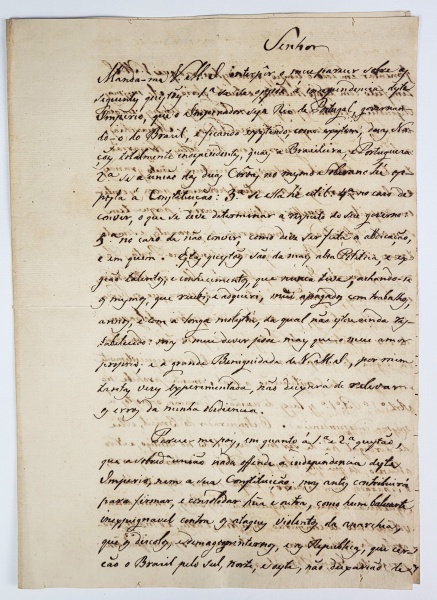 Senhor
Manda-me V. M. I. interpôr o meu parecer sobre os
seguintes quesitos: 1.º se he opposta á independencia deste
Imperio, que o Imperador seja Rei de Portugal, governan-
do-o do Brasil, e ficando existindo, como existem, duas Na-
ções totalmente independentes, quaes a Brasileira e Portugueza
2.º se a união das duas Coroas no mesmo Soberano he op-
posta á Constituição: 3.º se ella he util: 4.º no caso de
convir, o que se deve determinar a respeito do seu governo:
5.º no caso de não convir, como deve ser feita a abdicação,
e em quem. Estes quesitos são da mais alta Politica, e ex-
igião talentos, e conhecimentos, que nunca tive, achando-se
os mesmos, que recebi e adquiri, mui apagados com trabalhos,
annos, e com a longa molestia, da qual não estou ainda res-
tabelecido: mas o meu dever póde mais que o meu amor
proprio; e a grande Benignidade de V. M. I., por mim
tantas vezes experimentada, não deixará de relevar
os erros da minha obediencia.
Parece-me pois, em quanto á 1.ª e 2.ª questão,
que a união nada offende a independencia deste
Imperio, nem a sua Constituição: mas antes contribuirá
para firmar, e consolidar hũa e outra, como hum baluarte
inexpugnavel contra os ataques violentos da anarchia,
que os discolos, e demagogos internos, e as Republicas, que cer-
cão o Brasil pelo sul, norte, e oeste, não deixarião de